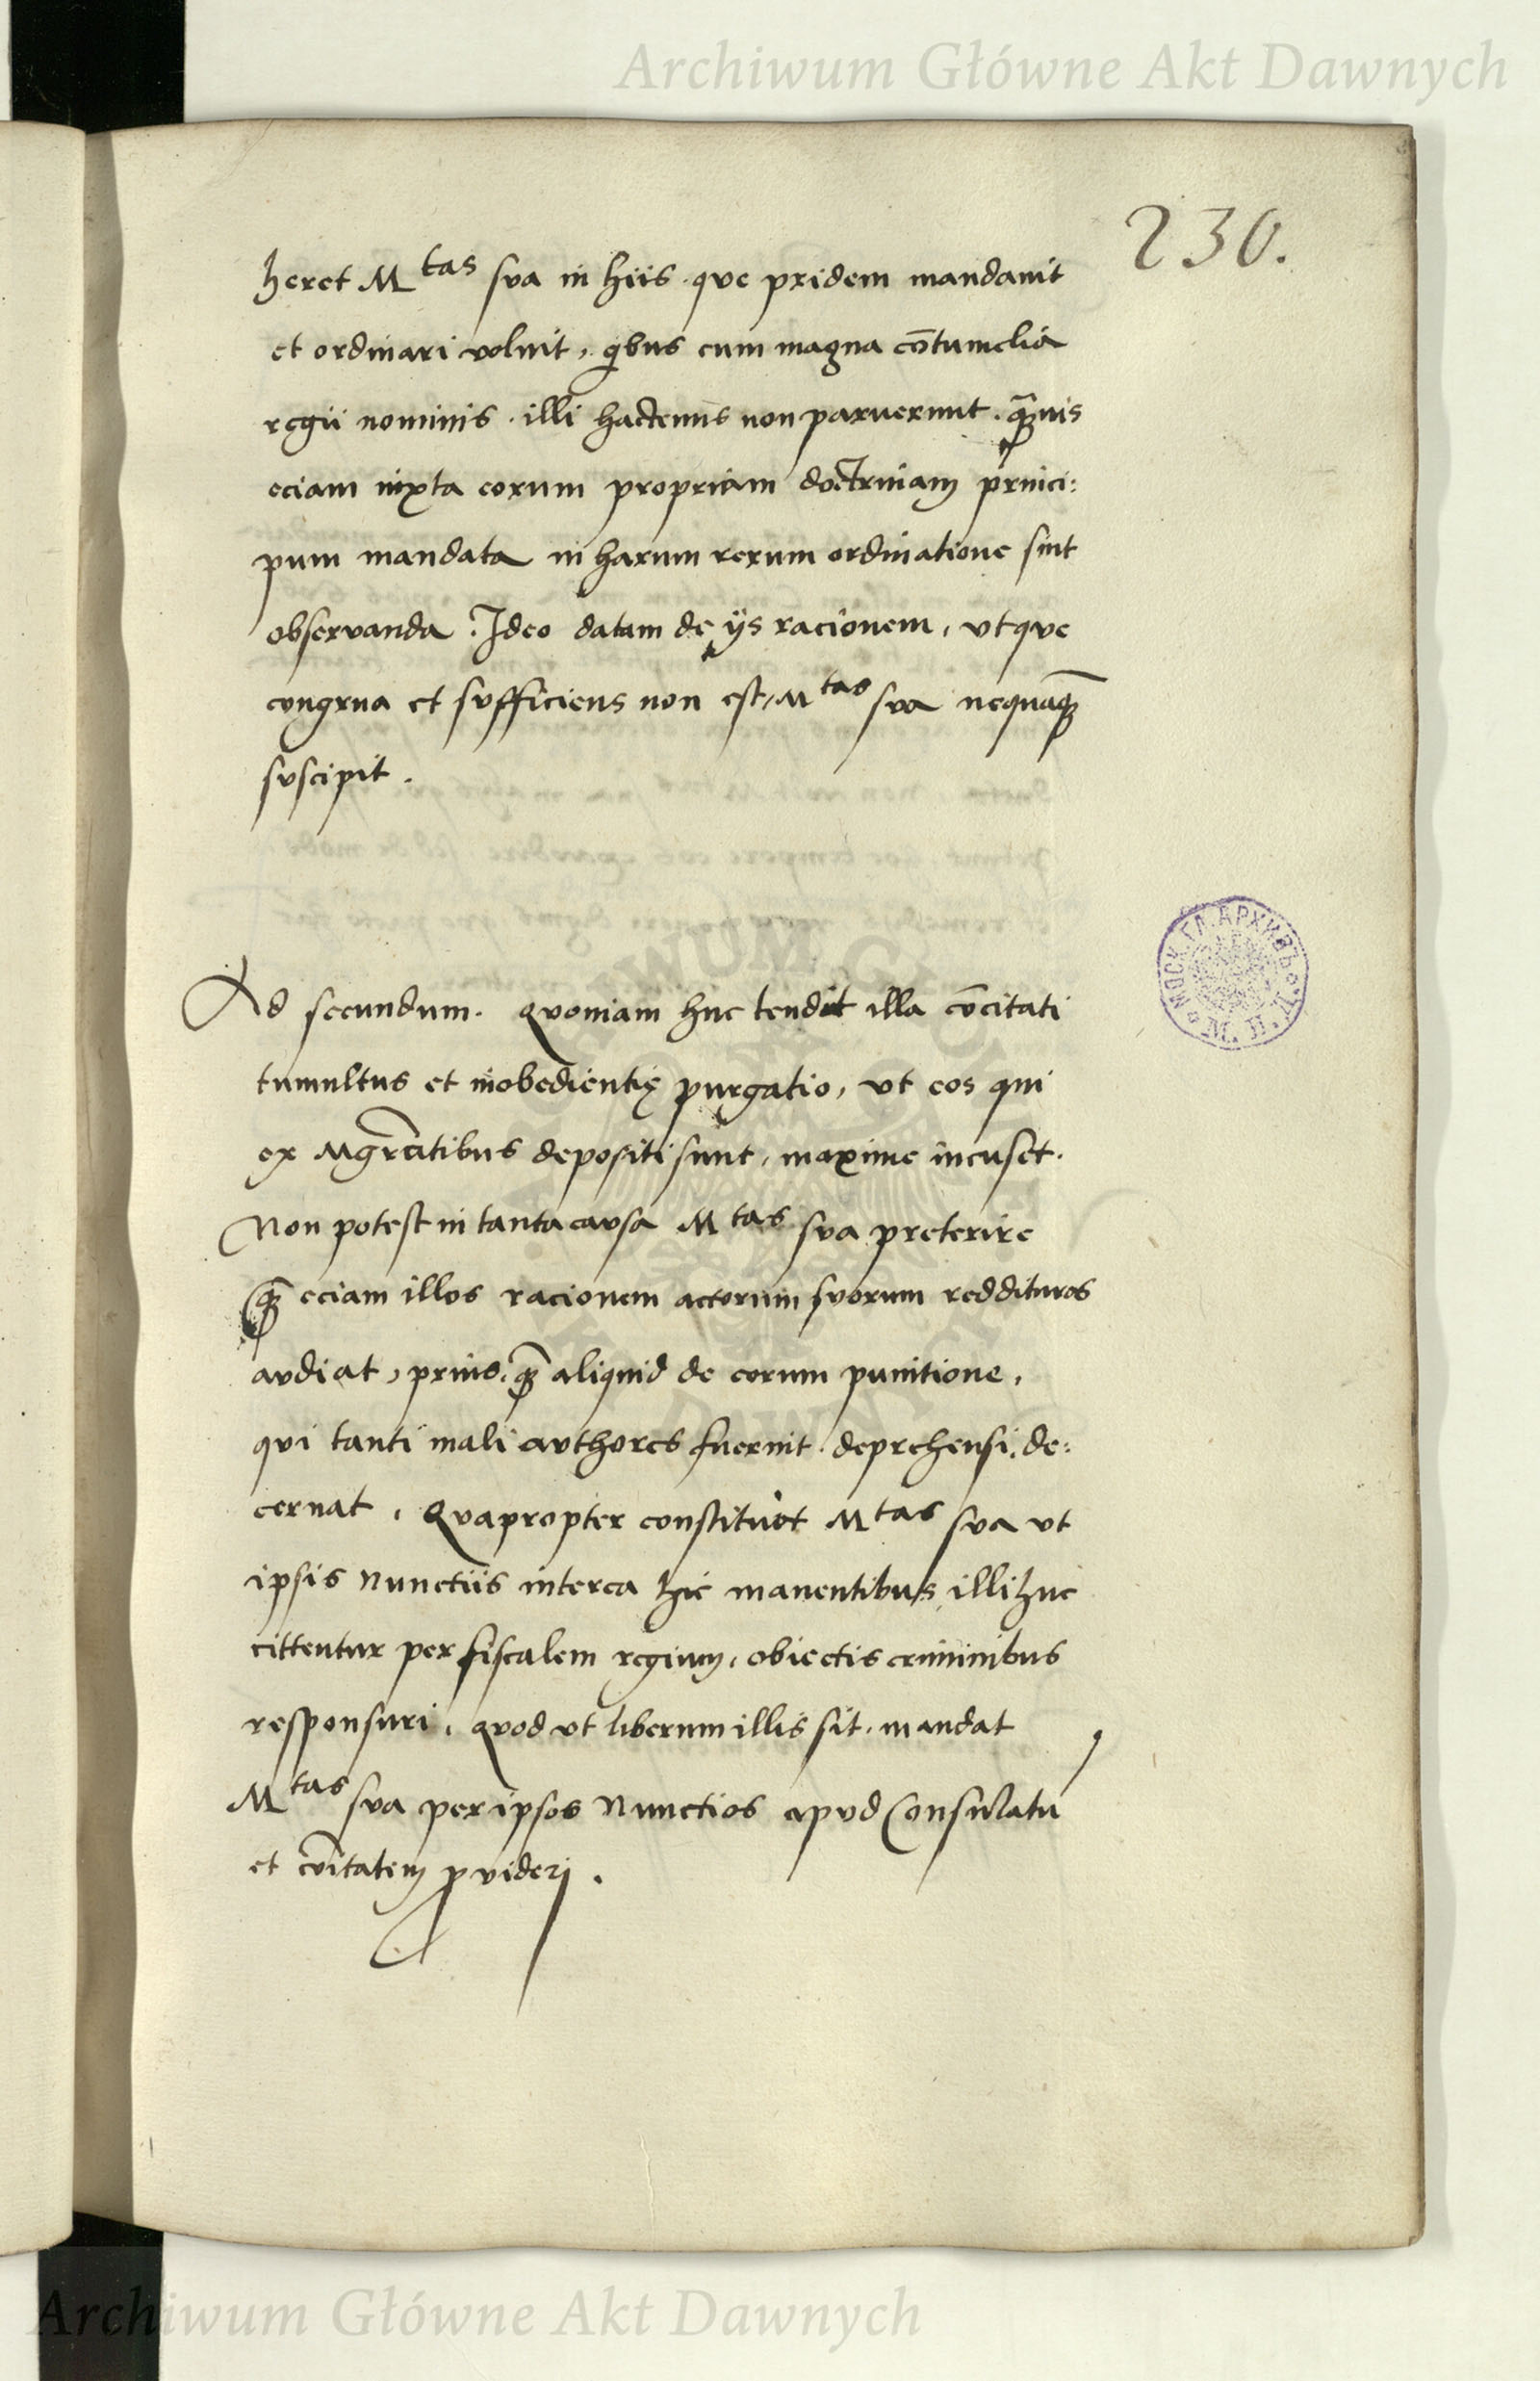 Archiwum Główne Akt Dawnych
230.
heret M tas sua in hiis que pridem mandauit
et ordinari voluit, qbus cum magna cōtumelia
regii nominis illi hactenus non paruerunt. q̄uis
eciam iuxta eorum propriam doctrinam princi:
pum mandata in harum rerum ordinatione sint
obseruanda. Ideo datam de ijs racionem, vtque
congrua et sufficiens non est, M tas sua nequaq̄
suscipit.
Ad secundum. Quoniam huc tendit illa cōcitati
tumultus et inobedientię purgatio, vt eos qui
ex Mgrātibus depositi sunt, maxime incuset.
Non potest in tanta causa M tas sua preterire
q̄ eciam illos racionem actorum suorum reddituros
audiat, prius q̄ aliquid de eorum punitione,
qui tanti mali authores fuerint deprehensi, de:
cernat. Quapropter constituet M tas sua vt
ipsis Nunctiis interea hic manentibus, illi huc
cittentur per fiscalem regium, obiectis criminibus
responsuri, quod vt liberum illis sit, mandat
M tas sua per ipsos Nunctios apud Consulatū
et cōitatem prouideri.
МОСК. ГЛ. АРХИВЪ М. И. Д.
Archiwum Główne Akt Dawnych